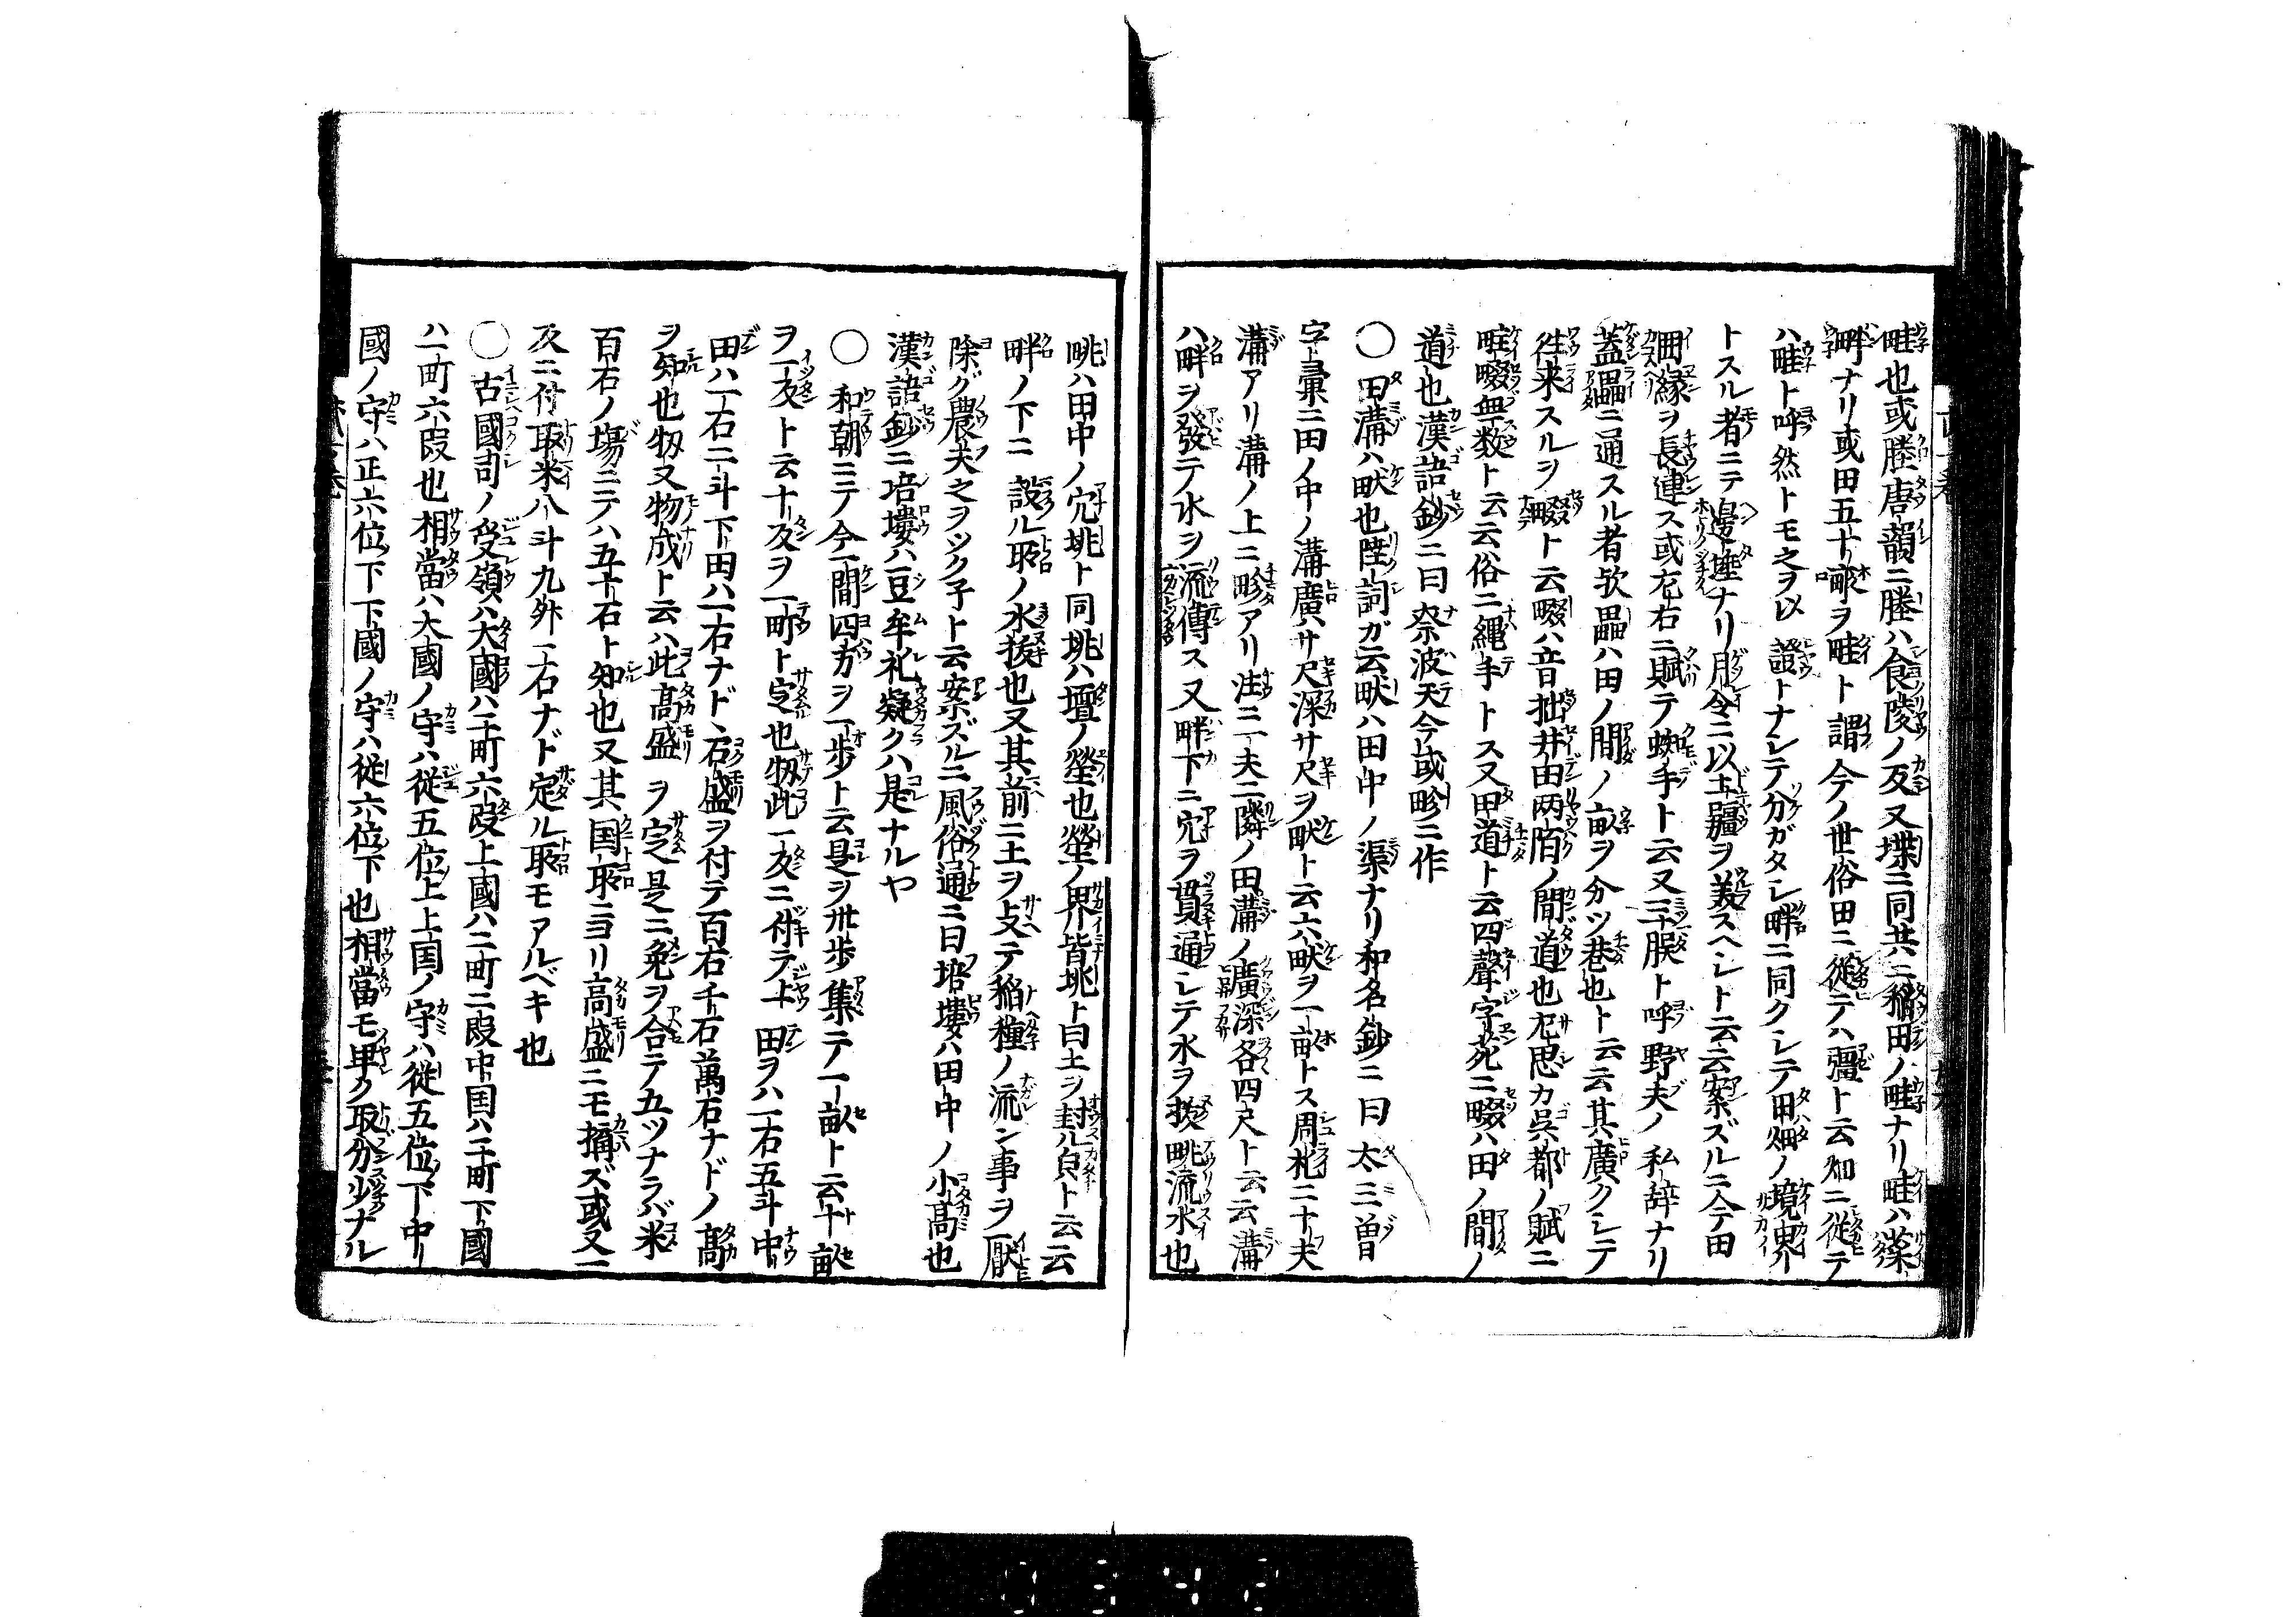 畦也或塍唐韻ニ塍ハ食陵ノ反又堘ニ同共ニ稲田ノ畦ナリ畦ハ
畔ナリ或田五十畝ヲ畦ト謂今ノ世俗田ニ從テハ彊ト云畑ニ從テ
ハ畦ト呼然トモ之ヲ以證トナシテ分ガタシ畔ニ同クシテ田畑ノ境界
トスル者ニテ邊埵ナリ月令ニ以土疆ヲ美スヘシト云云案ズルニ今田
畑縁ヲ長連ス或左右ニ賦テ蜘手ト云又三十脵ト呼野夫ノ私辞ナリ
蓋畾ニ通スル者欤畾ハ田ノ間ノ畝ヲ分ツ巷也ト云云其廣クシテ
徃来スルヲ畷ト云畷ハ音拙井田两陌ノ間道也左思カ呉都ノ賦ニ
畦畷無数ト云云俗ニ縄手トス又甲道ト云四聲字苑ニ畷ハ田ノ間ノ
道也漢語鈔ニ曰奈波天今或畛ニ作
〇田溝ハ畎也陸詞ガ云畎ハ田中ノ渠ナリ和名鈔ニ曰太三曽
字彙ニ田ノ中ノ溝廣サ尺深サ尺ヲ畎ト云六畎ヲ一畝トス周礼ニ十夫
溝アリ溝ノ上ニ畛アリ注ニ一夫二隣ノ田溝ノ廣深各四尺ト云云溝
ハ畔ヲ發テ水ヲ流傳ス又畔下ニ穴ヲ貫通シテ水ヲ挨畩流水也
畩ハ田中ノ穴垗ト同垗ハ壇ノ塋也塋ノ界皆垗ト曰土ヲ封ル皃ト云云
畔ノ下ニ設ル所ノ水挨也又其前ニ土ヲ攴テ稲種ノ流ン事ヲ厭
除グ農夫之ヲツク子ト云案ズルニ風俗通ニ曰培塿ハ田中ノ小高也
漢語鈔ニ培塿ハ豆牟礼疑クハ是ナルヤ
〇和朝ニテ今一間四方ヲ一歩ト云是ヲ卅歩集テ一畝ト云十畝
ヲ一反ト云十反ヲ一町ト定也扨此一反ニ付テ上田ヲハ一石五斗中
田ハ一石二斗下田ハ一石ナド丶石盛ヲ付テ百石千石萬石ナドノ高
ヲ知也扨又物成ト云ハ此高盛ヲ定是ニ免ヲ合テ五ツナラバ米
百石ノ場ニテハ五十石ト知也又其国所ニヨリ高盛ニモ搆ズ或又一
反ニ付取米八斗九升一石ナド定ル所モアルベキ也
〇古國司ノ受領ハ大國ハ二町六段上國ハ二町二段中国ハ二町下國
ハ一町六段也相當ハ大國ノ守ハ從五位上上国ノ守ハ從五位下中
國ノ守ハ正六位下下國ノ守ハ從六位下也相當モ卑ク取分少ナル